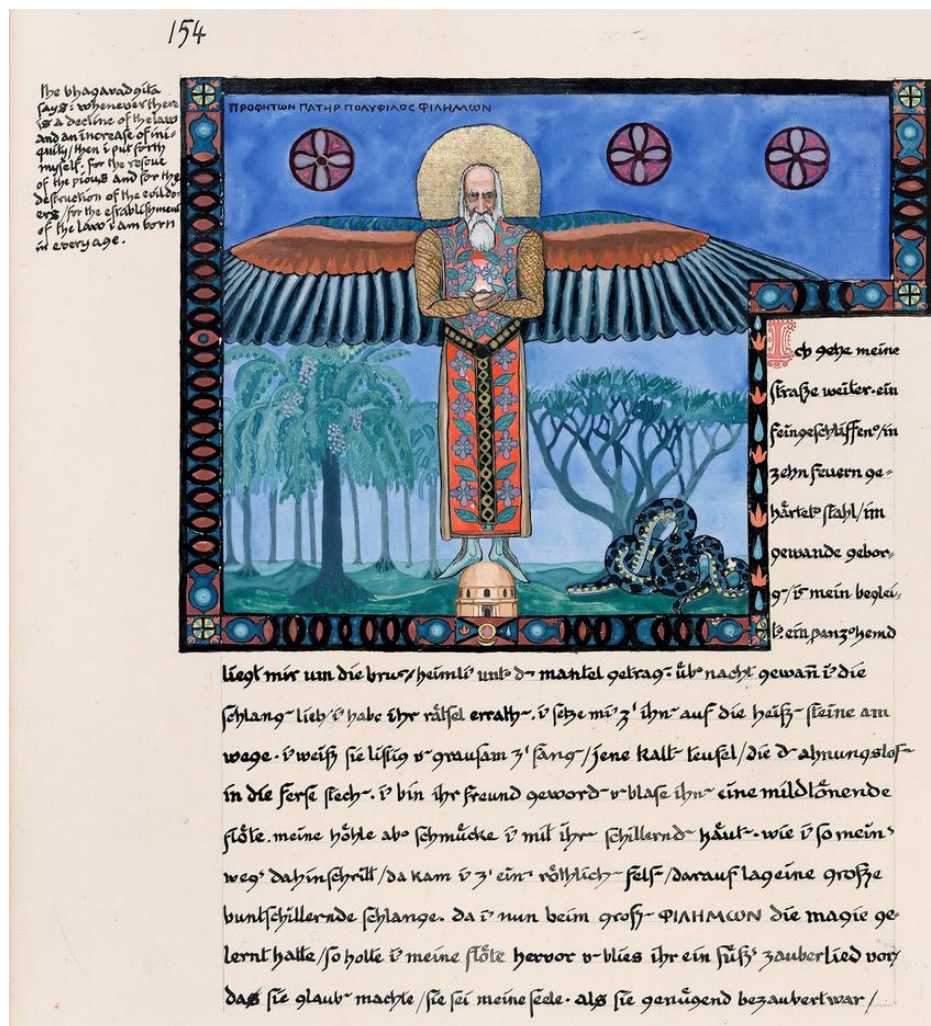 154
the bhagavadgita
says: whenever there
is a decline of the law
and an increase of ini-
quity/then i put forth
myself. for the rescue
of the pious and for the
destruction of the evildo-
ers/for the establishment
of the law i am born
in every age.
ΠΡΟΦΗΤΩΝ ΠΑΤΗΡ ΠΟΛΥΦΙΛΟΣ ΦΙΛΗΜΩΝ
Ich gehe meine
straße weiter. ein
feingeschliffen/in
zehn feuern ge-
härtet stahl/im
gewande gebor-
g/i mein beglei-
t. ein panzohemd
liegt mir um die brust/heimli unt d mantel getrag. üb nacht gewan̄ i die
schlang lieb/i habe ihr rätsel errath. i setze mi z' ihn auf die heiß steine am
wege. i weiß sie listig v grausam z' fang/jene kalt teufel/die d ahnungslos
in die ferse stech. i bin ihr freund geword v blase ihn eine mildtönende
flöte. meine höhle ab schmücke i mit ihr schillernd häut. wie i so mein
weg dahinschritt/da kam i z' ein röthlich fels/darauf lag eine große
buntschillernde schlange. da i nun beim groß ΦΙΛΗΜΩΝ die magie ge-
lernt hatte/so holte i meine flöte hervor v blies ihr ein süß zauberlied vor/
das sie glaub machte/sie sei meine seele. als sie genügend bezaubert war/